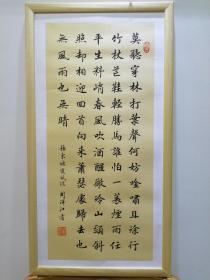 莫聽穿林打葉聲何妨唫嘯且徐行
竹杖芒鞋輕勝馬誰怕一蓑煙雨任
平生料峭春風吹酒醒微冷山頭斜
照卻相迎回首向來蕭瑟處歸去也
無風雨也無晴
蘇東坡定風波 周江書